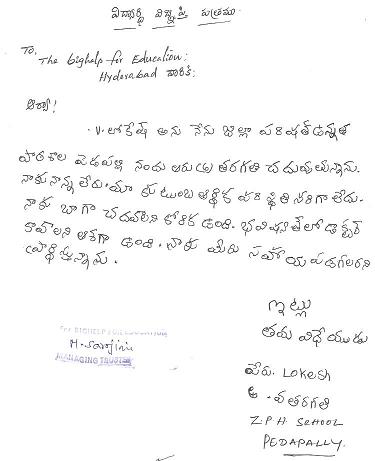 విద్యార్థి విజ్ఞప్తి పత్రము
To,
The bighelp for Education:
Hyderabad వారికి:
ఆర్యా!
V. లోకేష్ అను నేను జిల్లా పరిషత్ ఉన్నత
పాఠశాల పెదపల్లి నందు ఆరువ తరగతి చదువుతున్నాను.
నాకు నాన్న లేరు. మా కుటుంబ ఆర్థిక పరిస్థితి సరిగా లేదు.
నాకు బాగా చదవాలని కోరిక ఉంది. భవిష్యతేలో డాక్టర్
కావాలని ఆశగా ఉంది. నాకు మీరు సహాయ పడగలరని
ప్రార్థిస్తున్నాను.
ఇట్లు
తమ విధేయుడు
పేరు. Lokesh
6. వ తరగతి
Z.P.H SCHOOL
PEDAPALLY.
For BIGHELP FOR EDUCATION
M. Sarojini
MANAGING TRUSTEE